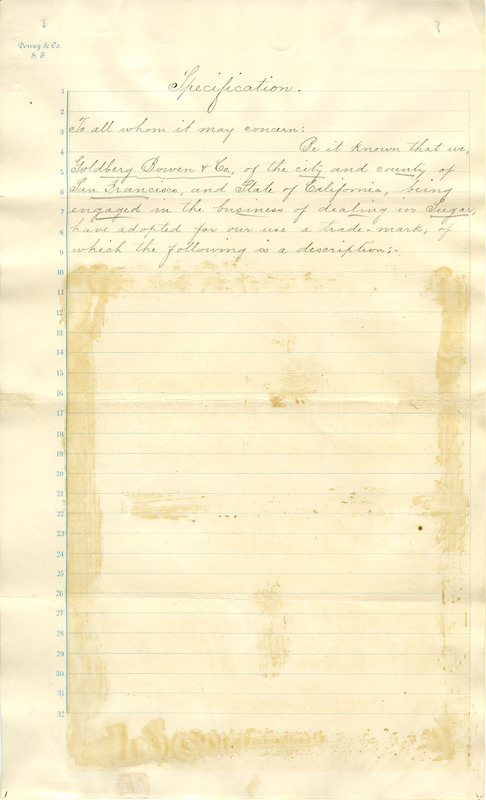 Dewey & Co.
S. F.
Specification.
1
2
3 To all whom it may concern:
4 Be it known that we,
5 Goldberg Bowen & Co., of the city and county of
6 San Francisco, and State of California, being
7 engaged in the business of dealing in Sugar,
8 have adopted for our use a trade-mark, of
9 which the following is a description:-
10
11
12
13
14
15
16
17
18
19
20
21
22
23
24
25
26
27
28
29
30
31
32